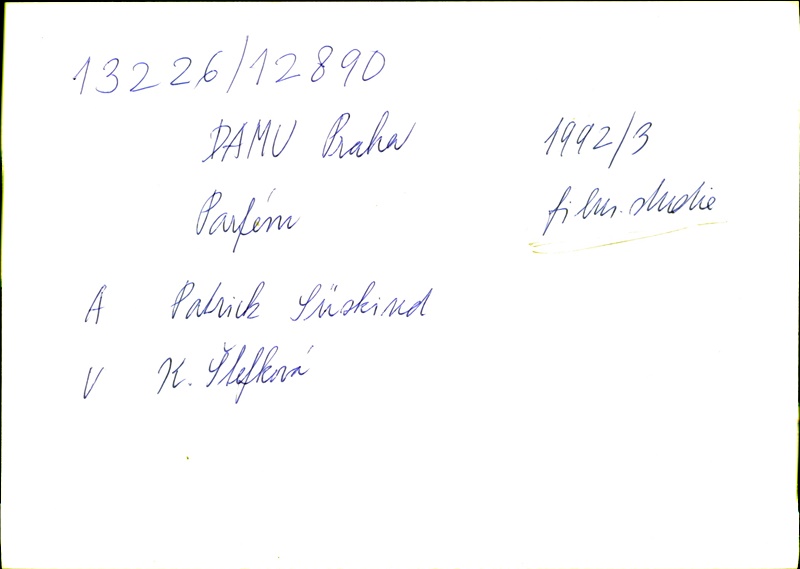 13226/12890
DAMU Praha 1992/3
Parfém film. studie
A Patrick Süskind
V K. Štefková